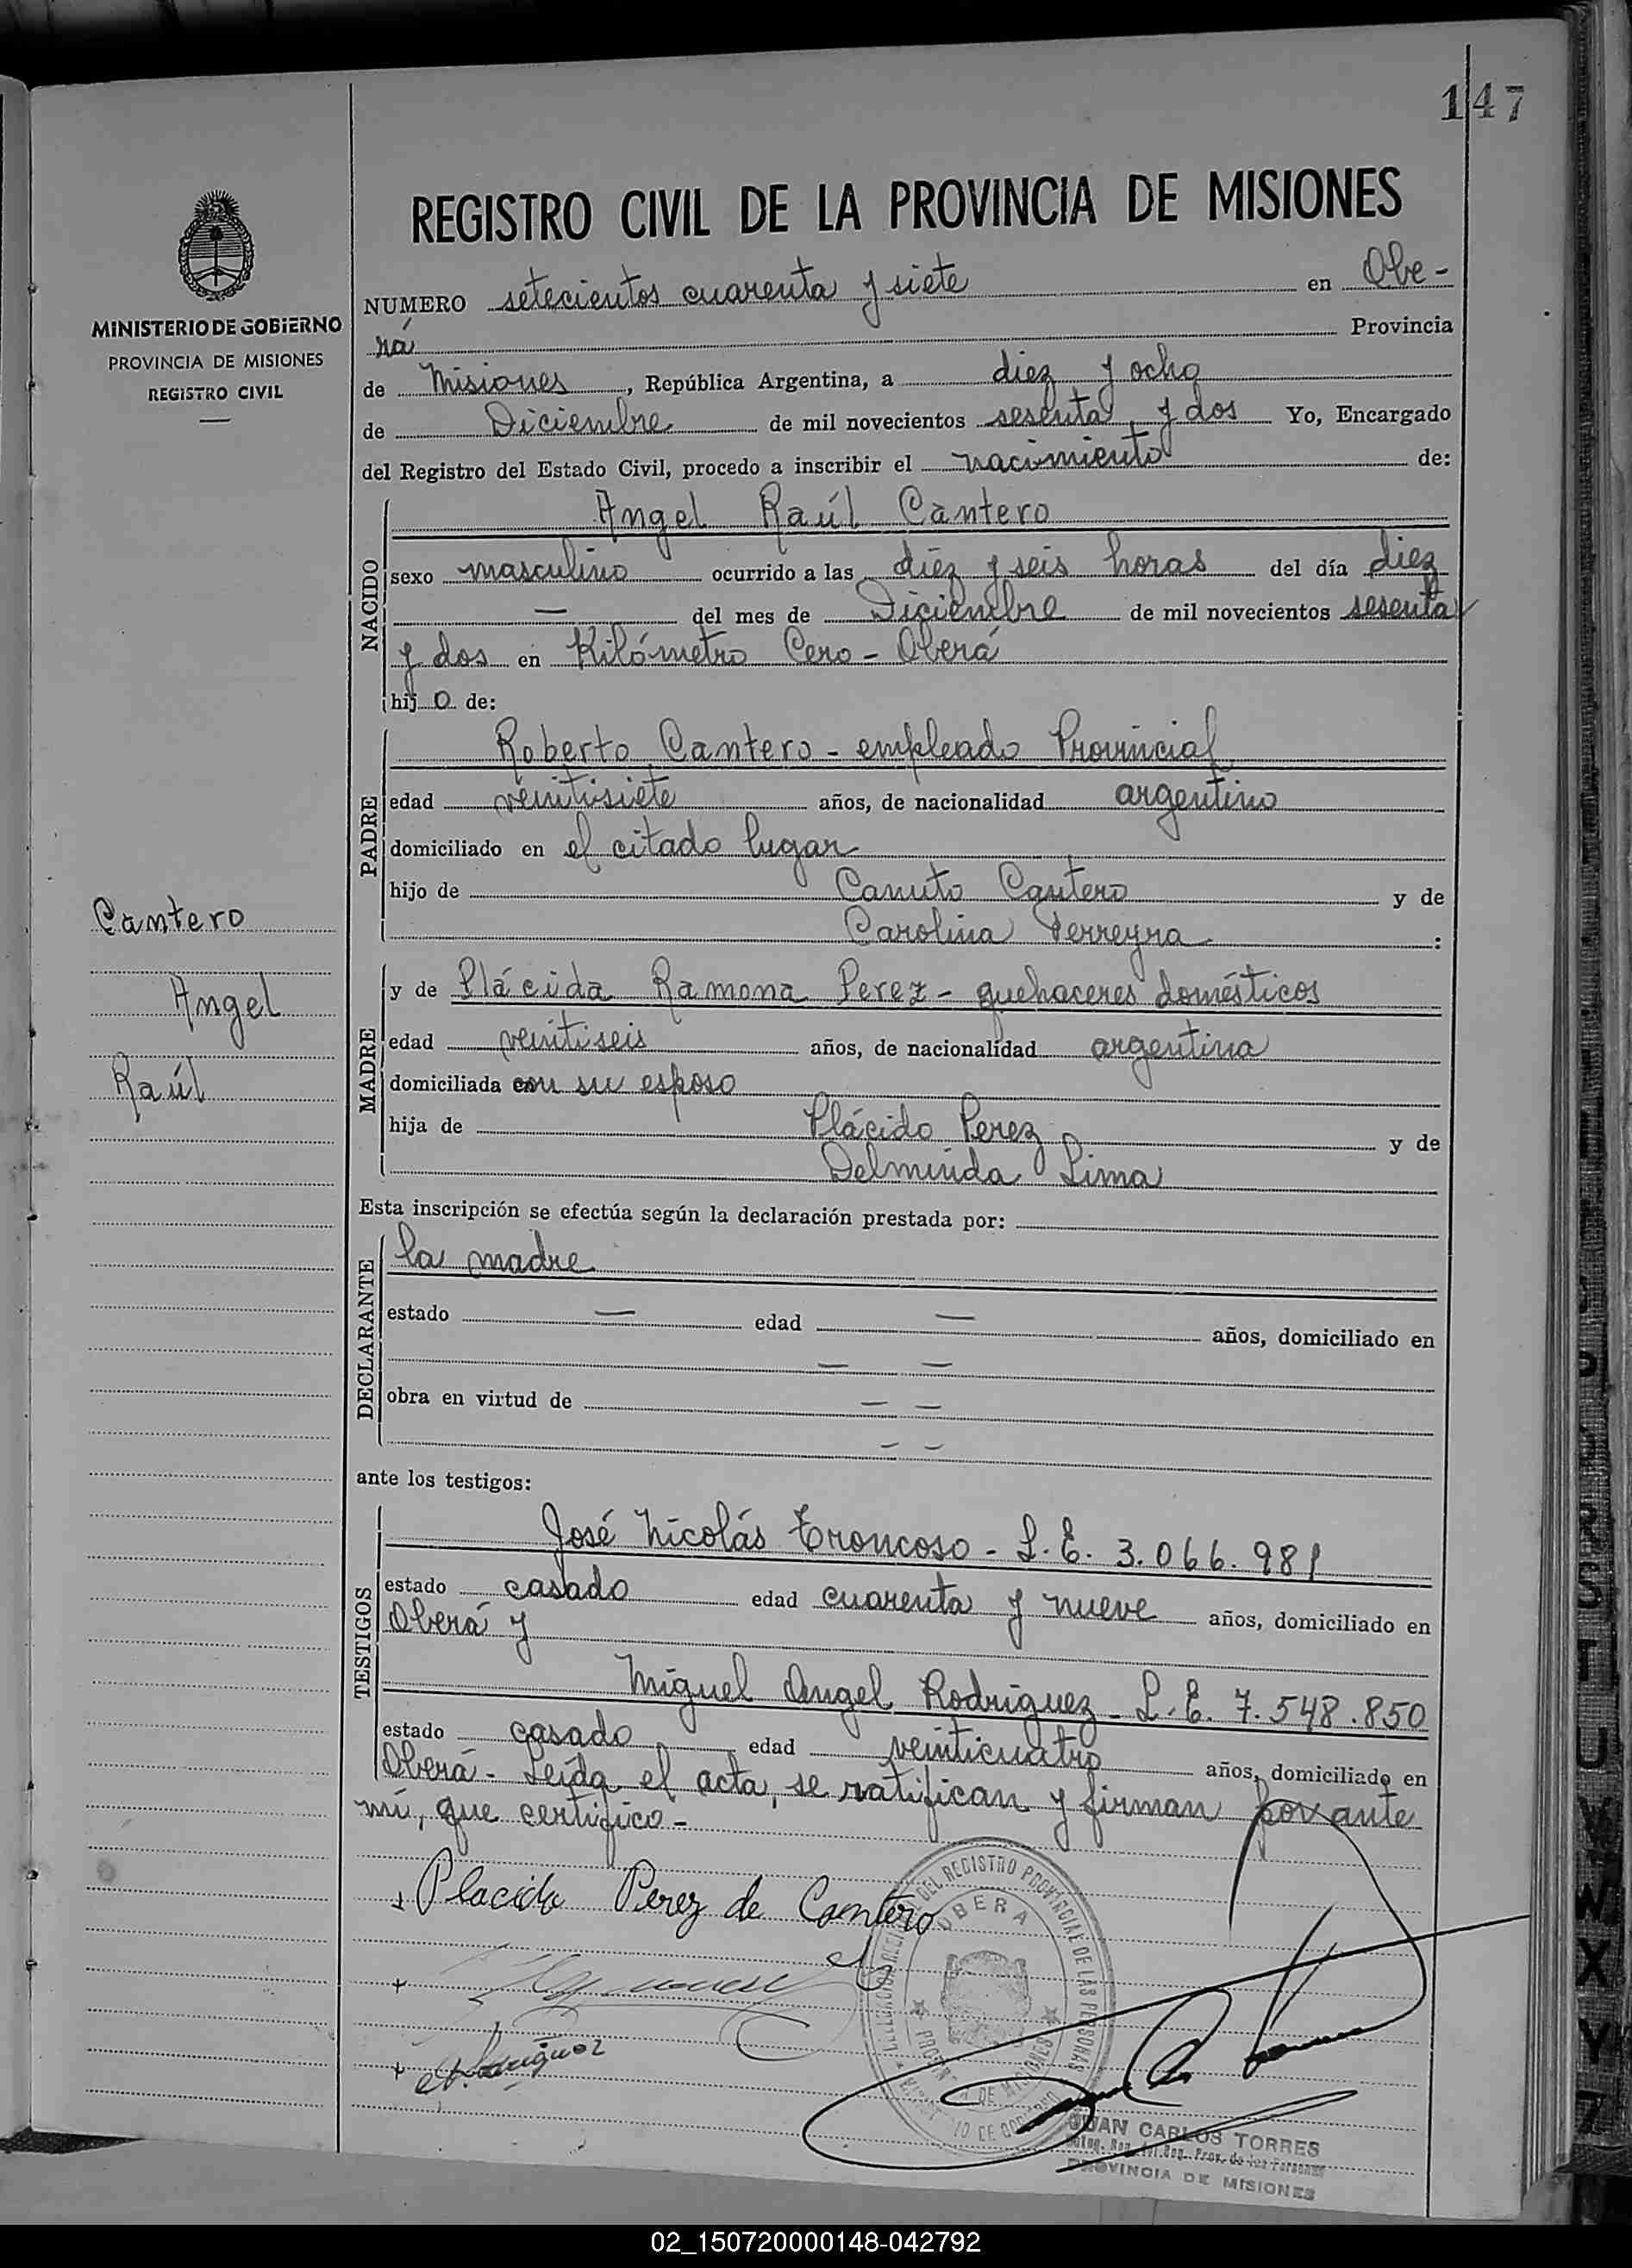 147
REGISTRO CIVIL DE LA PROVINCIA DE MISIONES
MINISTERIO DE GOBIERNO
PROVINCIA DE MISIONES
REGISTRO CIVIL
NUMERO setecientos cuarenta y siete en Obe-
rá Provincia
de Misiones, República Argentina, a diez y ocho
de Diciembre de mil novecientos sesenta y dos Yo, Encargado
del Registro del Estado Civil, procedo a inscribir el nacimiento de:
NACIDO
Angel Raúl Cantero
sexo masculino ocurrido a las diéz y seis horas del día diez
— del mes de Diciembre de mil novecientos sesenta
y dos en Kilómetro Cero - Oberá
hijo de:
PADRE
Roberto Cantero - empleado Provincial
edad veintisiete años, de nacionalidad argentino
domiciliado en el citado lugar
hijo de Canuto Cantero y de
Carolina Ferreyra :
Cantero
Angel
Raúl
MADRE
y de Plácida Ramona Perez - quehaceres domésticos
edad veintiseis años, de nacionalidad argentina
domiciliada con su esposo
hija de Plácido Perez y de
Delminda Lima
Esta inscripción se efectúa según la declaración prestada por:
DECLARANTE
la madre
estado — edad — años, domiciliado en
— —
obra en virtud de — —
— —
ante los testigos:
TESTIGOS
José Nicolás Troncoso - L.E. 3.066.981
estado casado edad cuarenta y nueve años, domiciliado en
Oberá y
Miguel Angel Rodriguez - L.E. 7.548.850
estado casado edad veinticuatro años, domiciliado en
Oberá - Leída el acta, se ratifican y firman por ante
mí, que certifico -
Placida Perez de Cantero
Rodriguez
DEL REGISTRO PROVINCIAL DE LAS PERSONAS
OBERA
PROVINCIA DE MISIONES
JUAN CARLOS TORRES
Prov. de las Personas
PROVINCIA DE MISIONES
U V W X Y Z
02_150720000148-042792